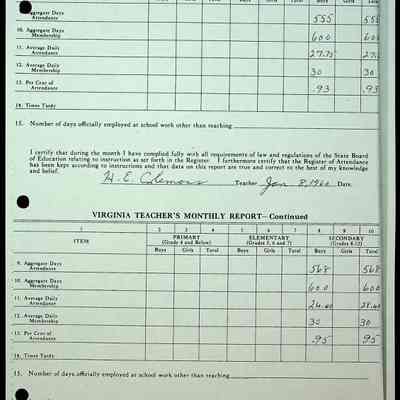 Boys Girls Total Boys Girls Total Boys Girls Total
Aggregate Days
Attendance 555 555
10. Aggregate Days
Membership 600 600
11. Average Daily
Attendance 27.75 27.
12. Average Daily
Membership 30 30
13. Per Cent of
Attendance .93 .93
14. Times Tardy
15. Number of days officially employed at school work other than teaching
I certify that during the month I have complied fully with all requirements of law and regulations of the State Board
of Education relating to instruction as set forth in the Register. I furthermore certify that the Register of Attendance
has been kept according to instructions and that data on this report are true and correct to the best of my knowledge
and belief.
H. E. Clemons Teacher Jan 8, 1960 Date.
VIRGINIA TEACHER'S MONTHLY REPORT—Continued
1 2 3 4 5 6 7 8 9 10
ITEM PRIMARY
(Grade 4 and Below) ELEMENTARY
(Grades 5, 6 and 7) SECONDARY
(Grades 8-12)
Boys Girls Total Boys Girls Total Boys Girls Total
9. Aggregate Days
Attendance 568 568
10. Aggregate Days
Membership 600 600
11. Average Daily
Attendance 28.40
12. Average Daily
Membership 30 30
13. Per Cent of
Attendance .95 95
14. Times Tardy
15. Number of days officially employed at school work other than teaching